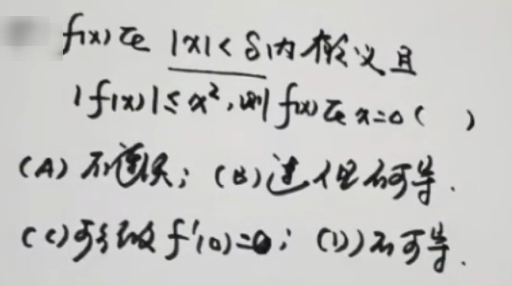 f(x)在 |x|<δ内有定义且
|f(x)|≤x²,则f(x)在x=0( )
(A) 不连续; (B)连但不可导.
(C)可导且 f'(0)=0; (D)不可导.